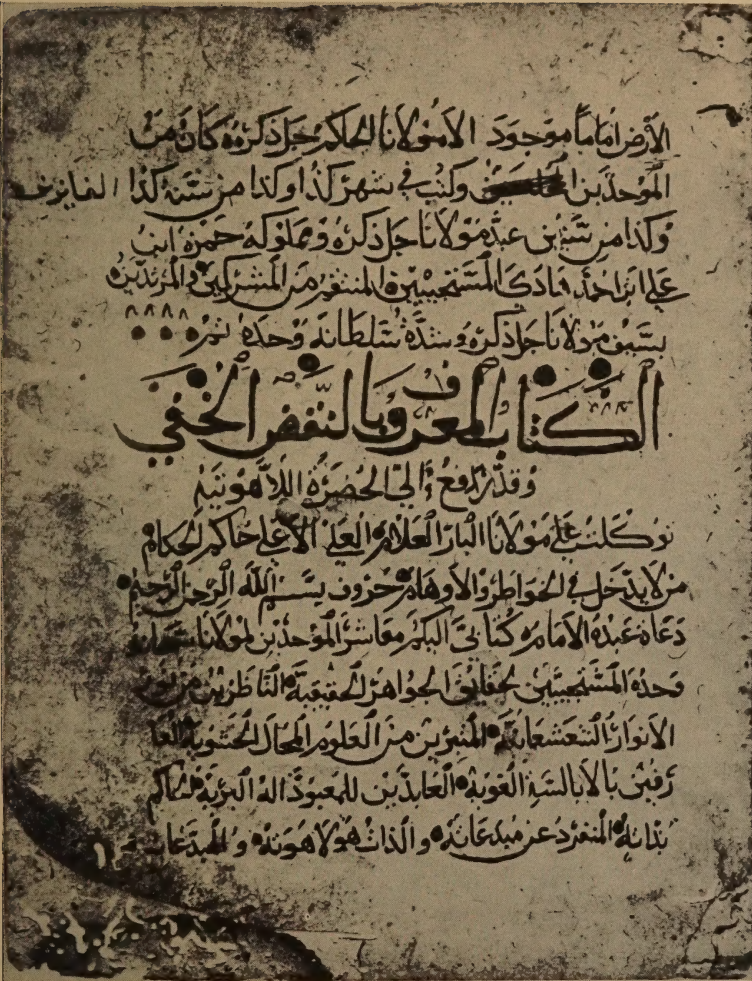 الأرض إماماً موجود إلا مولانا الحاكم جل ذكره كان من
الموحدين وكتب في شهر كذا وكذا من سنة كذا الفايزين
وكذا من سنين عبد مولانا جل ذكره ومملوكه حمزة ابن
علي ابن احمد هادي المستجيبين المنتقم من المشركين والمرتدين
بسيف مولانا جل ذكره وشدة سلطانه وحده تمت
الكتاب المعروف بالنقض الخفي
وقد رفع إلى الحضرة اللاهوتية
توكلت على مولانا البار العلام العلي الأعلى حاكم الحكام
من لا يدخل في الخواطر والأوهام حروف بسم الله الرحمن الرحيم
دعاة عبده الامام كتابي اليكم معاشر الموحدين لمولانا سبحانه
وحده المستجيبين لحقايق الجواهر الحقيقية الناظرين من نور
الأنوار الشعشعانية المتبرين من العلوم المحال الحشوية العا
رفين بالأبالسة الغوية العابدين للمعبود اله البرية الحاكم
بذاته المنفرد عن مبدعاته والذات هو لاهوته والمبدعات